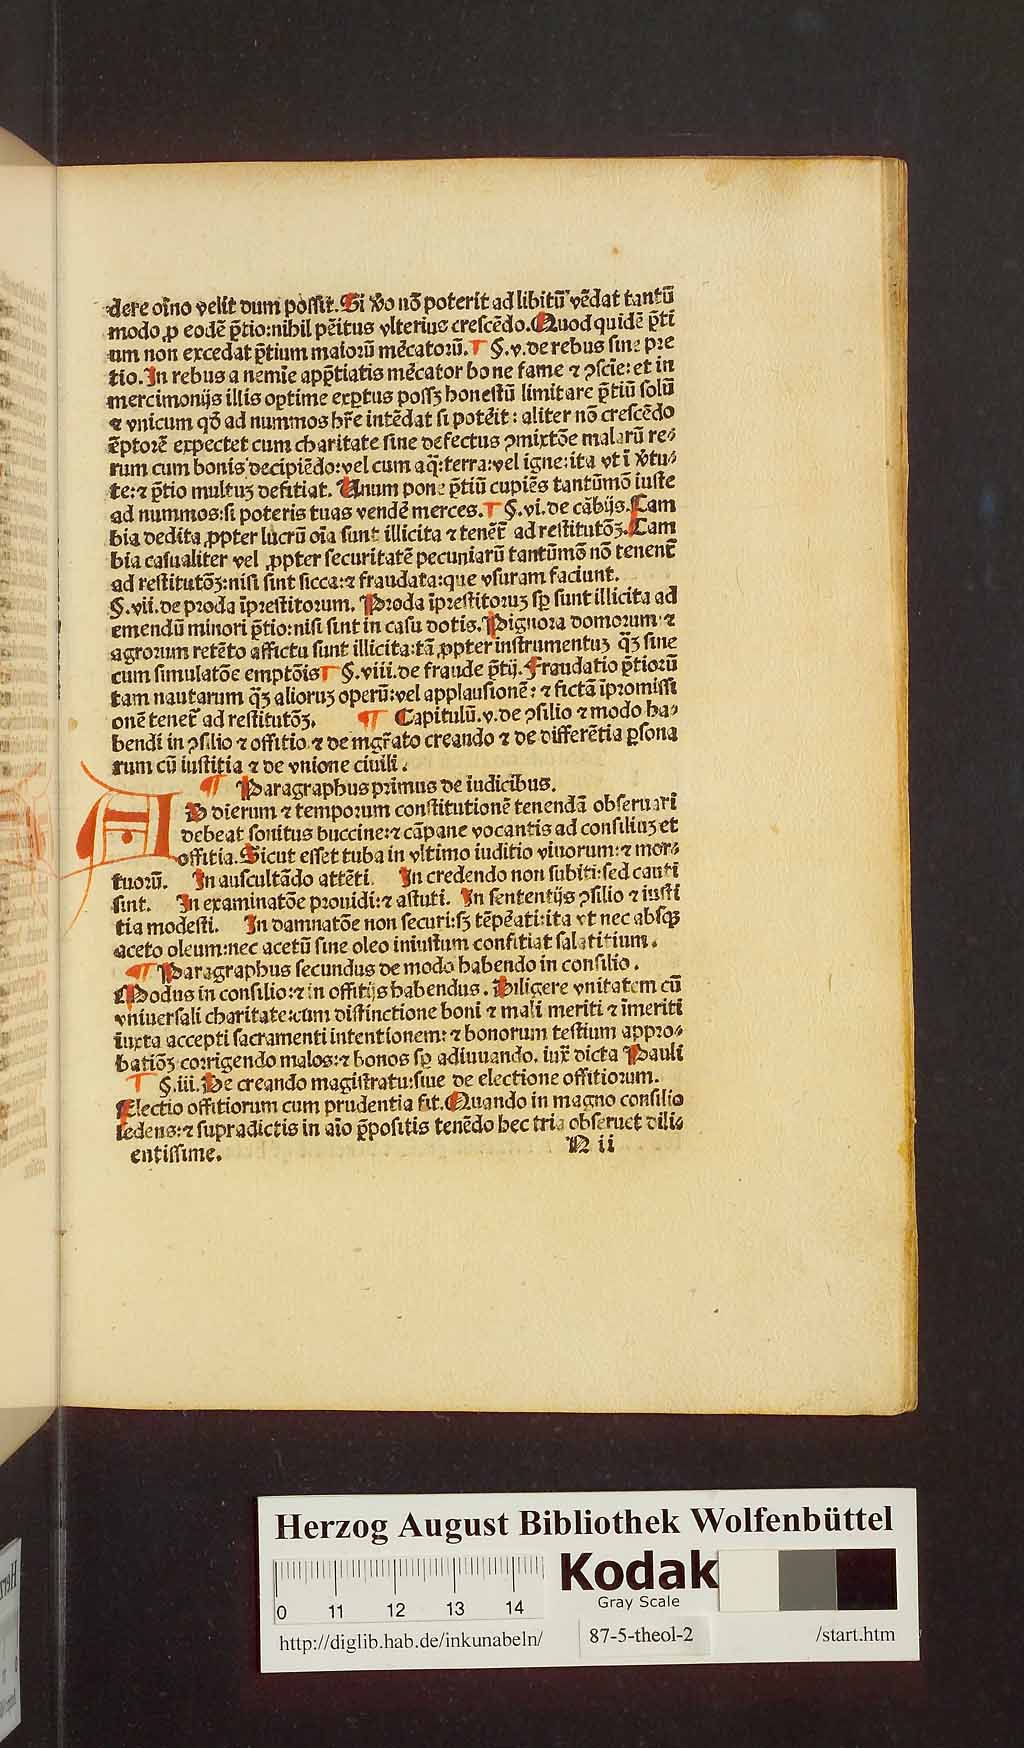 dere oĩno velit dum possit. Si ꝟo nō poterit ad libitū vēdat tantū
modo ꝓ eodē p̄tio: nihil pēitus vlterius crescēdo. Quod quidē p̄ti
um non excedat p̄tium maiorū mēcatorū. ¶ §. v. de rebus sine pre
tio. In rebus a nemīe app̄tiatis mēcator bone fame ⁊ ꝯscīe: et in
mercimonijs illis optime exꝑtus possꝫ honestū limitare p̄tiū solū
⁊ vnicum qđ ad nummos hr̄e intēdat si potēit: aliter nō crescēdo
ēptorē expectet cum charitate sine defectus ꝯmixtōe malarū re⸗
rum cum bonis decipiēdo: vel cum aq̄: terra: vel igne: ita vt ī ꝟtu⸗
te: ⁊ p̄tio multuꝫ defitiat. Unum pone p̄tiū cupiēs tantūmō iuste
ad nummos: si poteris tuas vendē merces. ¶ §. vi. de cābijs. Cam
bia dedita ꝓpter lucrū oīa sunt illicita ⁊ tenēt̄ ad restitutōꝫ. Cam
bia casualiter vel ꝓpter securitatē pecuniarū tantūmō nō tenent̄
ad restitutōꝫ: nisi sint sicca: ⁊ fraudata: que vsuram faciunt.
§. vii. de proda īprestitorum. Proda īprestitoruꝫ sꝑ sunt illicita ad
emendū minori p̄tio: nisi sint in casu dotis. Pignora domorum ⁊
agrorum retēto affictu sunt illicita: tā ꝓpter instrumentuꝫ q̄ꝫ sine
cum simulatōe emptōis ¶ §. viii. de fraude p̄tij. Fraudatio p̄tiorū
tam nautarum q̄ꝫ alioruꝫ operū: vel applausionē: ⁊ fictā īpromissi
onē tenet̄ ad restitutōꝫ. ¶ Capitulū. v. de ꝯsilio ⁊ modo ha⸗
bendi in ꝯsilio ⁊ offitio ⁊ de mgr̄ato creando ⁊ de differētia ꝑsona
rum cū iustitia ⁊ de vnione ciuili.
¶ Paragraphus primus de iudicibus.
AD dierum ⁊ temporum constitutionē tenendā obseruari
debeat sonitus buccine: ⁊ cāpane vocantis ad consiliuꝫ et
offitia. Sicut esset tuba in vltimo iuditio viuorum: ⁊ mor⸗
tuorū. In auscultādo attēti. In credendo non subiti: sed cauti
sint. In examinatōe prouidi: ⁊ astuti. In sententijs ꝯsilio ⁊ iusti
tia modesti. In damnatōe non securi: sꝫ tēpēati: ita vt nec absqꝫ
aceto oleum: nec acetū sine oleo iniustum confitiat salatitium.
¶ Paragraphus secundus de modo habendo in consilio.
Modus in consilio: ⁊ in offitijs habendus. Diligere vnitatem cū
vniuersali charitate: cum distinctione boni ⁊ mali meriti ⁊ īmeriti
iuxta accepti sacramenti intentionem: ⁊ bonorum testium appro⸗
batiōꝫ corrigendo malos: ⁊ bonos sꝑ adiuuando. iux̄ dicta Pauli
¶ §. iii. De creando magistratu: siue de electione offitiorum.
Electio offitiorum cum prudentia fit. Quando in magno consilio
sedens: ⁊ supradictis in aīo p̄positis tenēdo hec tria obseruet dili⸗
entissime. N ii
Herzog August Bibliothek Wolfenbüttel
0 11 12 13 14
Kodak
Gray Scale
http://diglib.hab.de/inkunabeln/ 87-5-theol-2 /start.htm